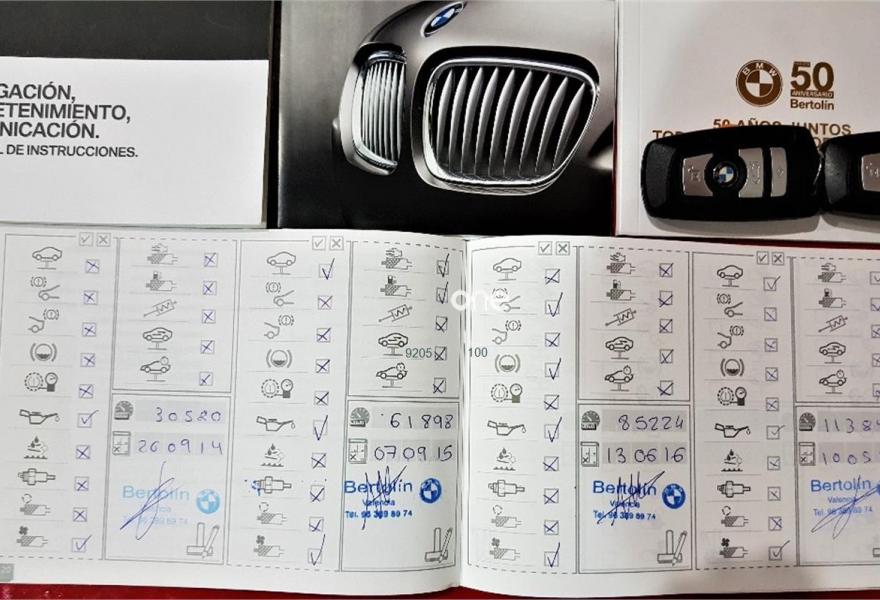 GACIÓN,
ETENIMIENTO,
NICACIÓN.
L DE INSTRUCCIONES.
BMW
50
ANIVERSARIO
Bertolín
50 AÑOS JUNTOS
one
9205 100
30520
260914
Bertolín
Tel. 96 389 89 74
61898
070915
Bertolín
Valencia
Tel. 96 389 89 74
85224
130616
Bertolín
Valencia
Tel. 96 389 89 74
1138
1005
Bertolín
Valencia
Tel. 96 389 89 74